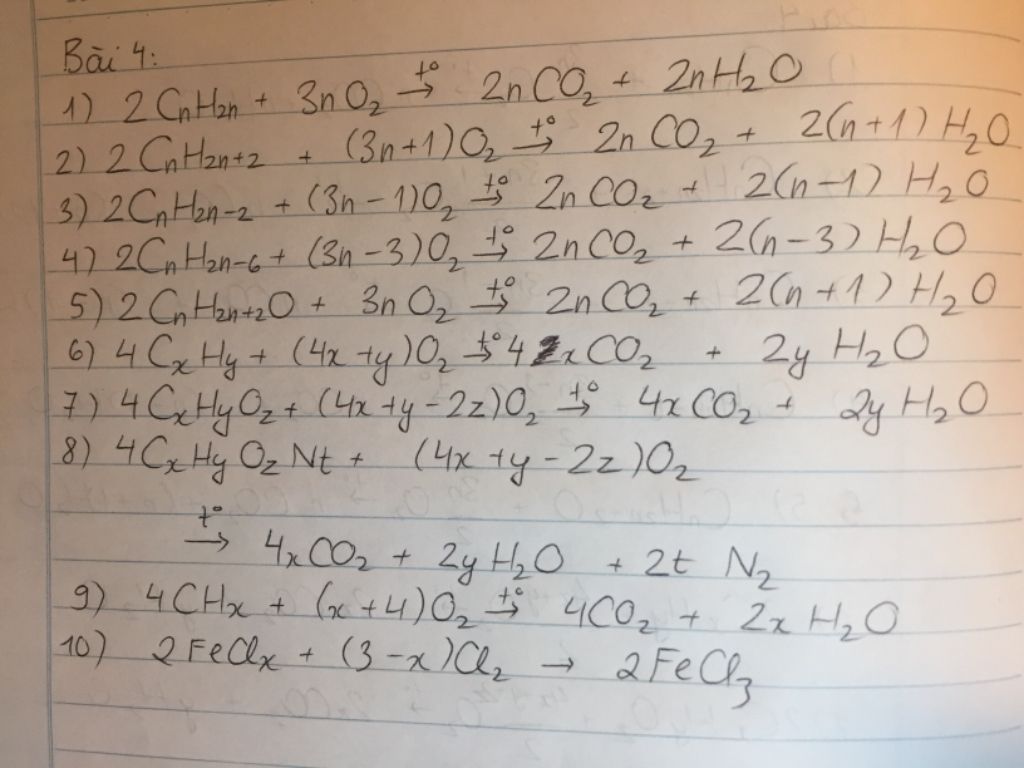 Bài 4:
1) 2CnH2n + 3nO2 t°→ 2nCO2 + 2nH2O
2) 2CnH2n+2 + (3n+1)O2 t°→ 2nCO2 + 2(n+1)H2O
3) 2CnH2n-2 + (3n-1)O2 t°→ 2nCO2 + 2(n-1)H2O
4) 2CnH2n-6 + (3n-3)O2 t°→ 2nCO2 + 2(n-3)H2O
5) 2CnH2n+2O + 3nO2 t°→ 2nCO2 + 2(n+1)H2O
6) 4CxHy + (4x+y)O2 t°→ 4xCO2 + 2yH2O
7) 4CxHyOz + (4x+y-2z)O2 t°→ 4xCO2 + 2yH2O
8) 4CxHyOzNt + (4x+y-2z)O2
t°→ 4xCO2 + 2yH2O + 2tN2
9) 4CHx + (x+4)O2 t°→ 4CO2 + 2xH2O
10) 2FeClx + (3-x)Cl2 → 2FeCl3